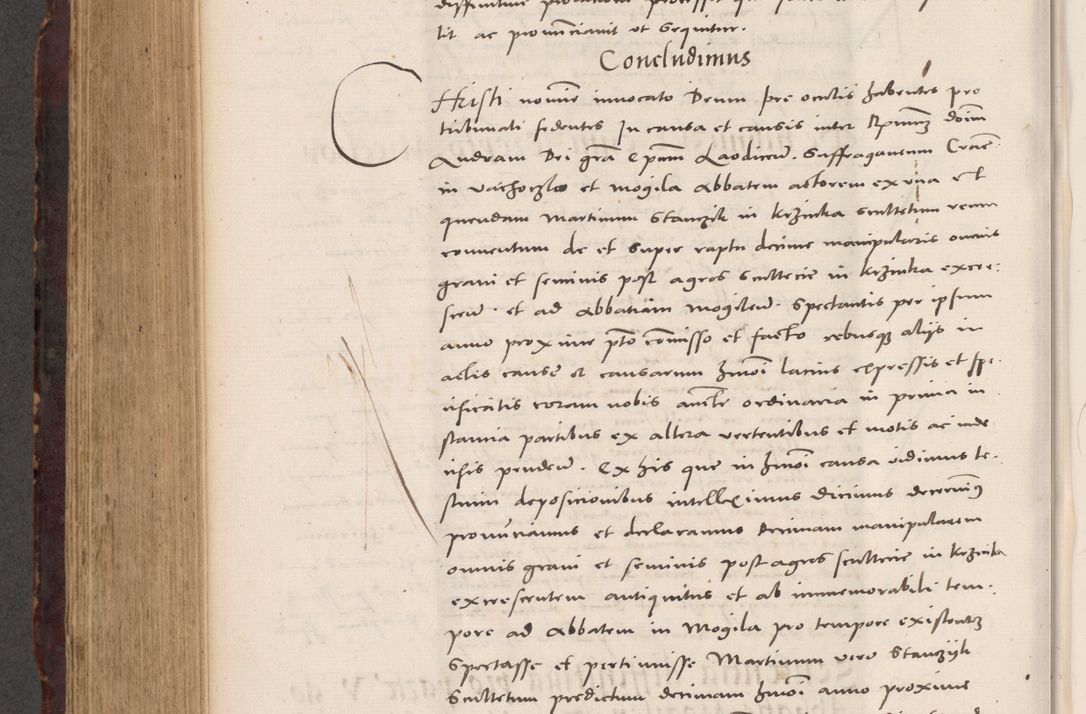 tit ac pronunciavit ut sequitur.
Concludimus
CHristi nomine invocato Deum pre oculis habentes pro
tribunali sedentes In causa et causis inter Rmum dominum
Andream Dei gra Epum Laodicen. Suffraganeum Cracen
in Vachoczko et Mogila Abbatem actorem ex una et
quendam Martinum Stanczik in Krzinka scultetum reum
conventum de et super raptu decime manipularis omnis
grani et seminis post agros scultecie in Krzinka excre-
scen. et ad Abbatiam Mogilen. Spectantis per ipsum
anno proxime pto comisso et facto rebusque alijs in
actis cause et causarum hmoi latius expressis et spe-
cificatis coram nobis aucte ordinaria in prima in
stancia partibus ex altera vertentibus et motis ac inde
cisis penden. Ex his que in hmoi causa vidimus te-
stium deposicionibus intelleximus dicimus decernimus
pronunciamus et declaramus Decimam manipularem
omnis grani et seminis post agros scultecie in Krzinka
excrescentem antiquitus et ab immemorabili tem-
pore ad Abbatem in Mogila pro tempore existentem
Spectasse et pertinuisse Martinum vero Stanczyk
Scultetum predictum decimam hmoi anno proxime